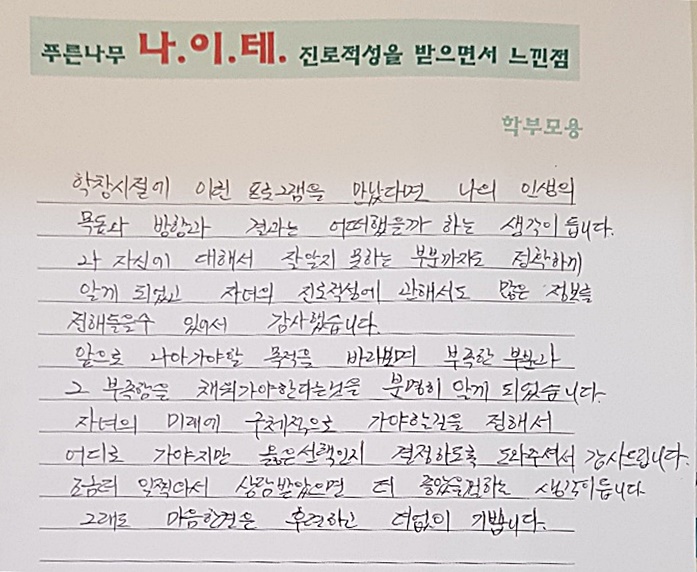 푸른나무 나.이.테. 진로적성을 받으면서 느낀점
학부모용
학창시절에 이런 프로그램을 만났다면 나의 인생의
목표와 방향과 결과는 어떠했을까 하는 생각이 듭니다.
나 자신에 대해서 잘알지 못하는 부분까지도 정확하게
알게 되었고 자녀의 진로적성에 관해서도 많은 정보를
전해들을수 있어서 감사했습니다.
앞으로 나아가야할 목적을 바라보며 부족한 부분과
그 부족함을 채워가야한다는것을 분명히 알게 되었습니다.
자녀의 미래에 구체적으로 가야할길을 정해서
어디로 가야지만 옳은선택인지 결정하도록 도와주셔서 감사드립니다.
조금더 일찍와서 상담받았으면 더 좋았을걸하는 생각이듭니다
그래도 마음한켠은 후련하고 더없이 기쁩니다.